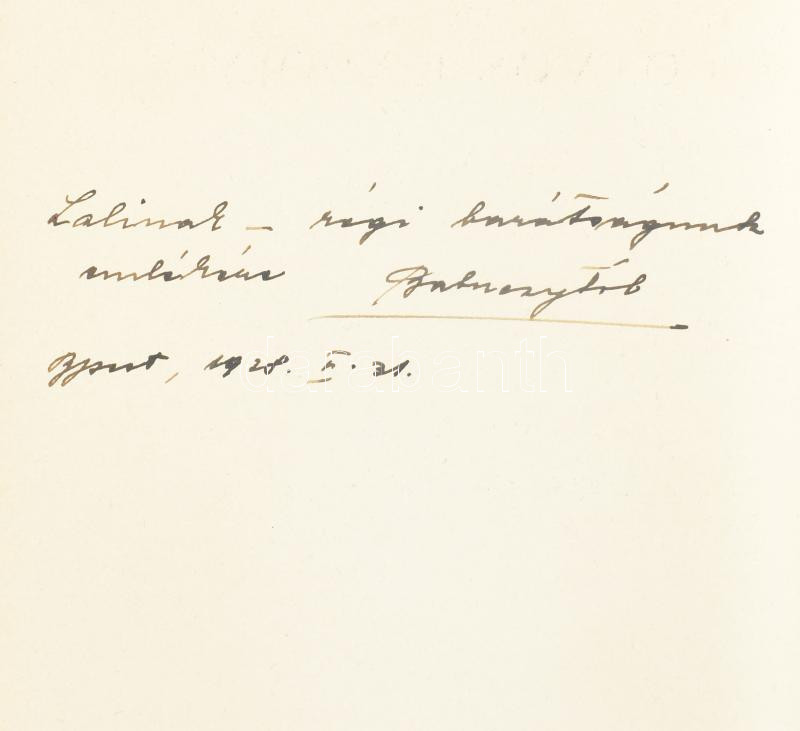 Lalinak – régi barátságunk
emlékére
Bpest, 1928. X. 21.
darabanth